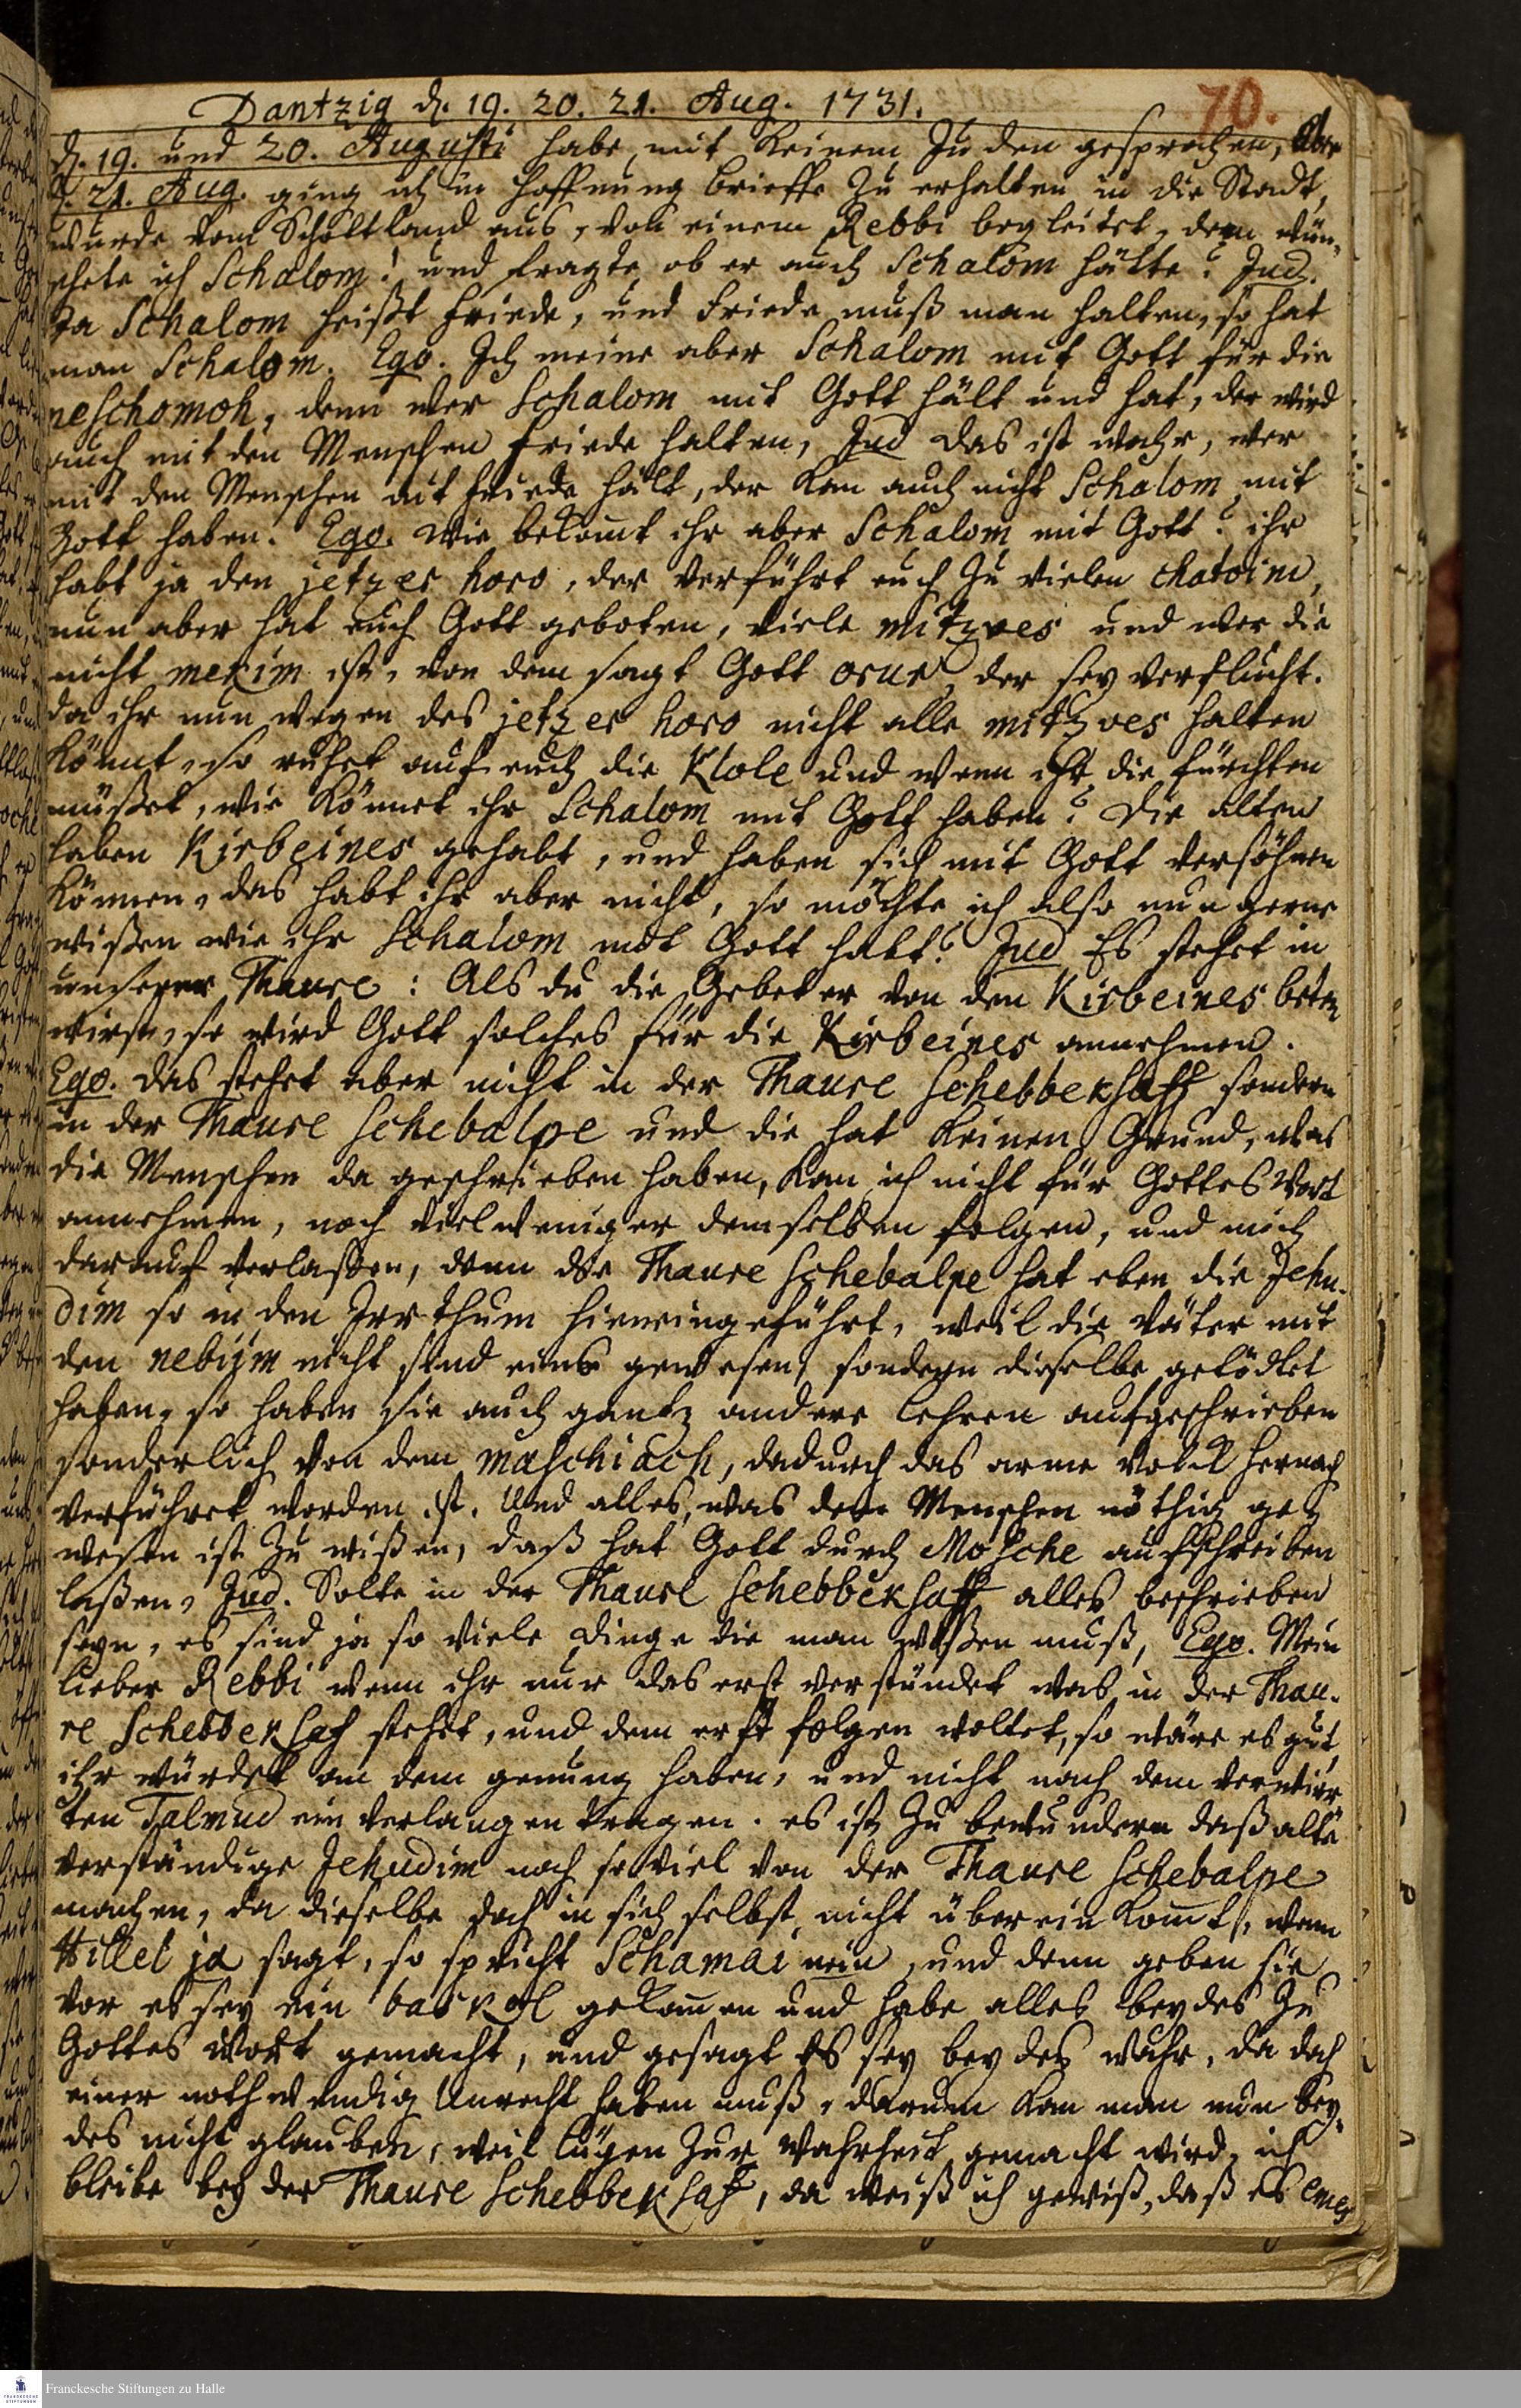 Dantzig d. 19. 20. 21. Aug. 1731.
70.
d. 19. und 20. Augusti habe mit keinem Juden gesprochen, aber
d. 21. Aug. ging ich in Hoffnung brieffe zu erhalten in die Stadt,
wurde vom Schottland aus, von einem Rebbi begleitet, dem wün-
schete ich Schalom! und fragte ob er auch Schalom hätte? Jud.
Ja Schalom heißt friede, und friede muß man halten, so hat
man Schalom. Ego. Ich meine aber Schalom mit Gott für die
neschomoh, denn wer Schalom mit Gott hält und hat, der wird
auch mit den Menschen friede halten, Jud das ist wahr, wer
mit den Menschen nit friede hält, der kan auch nicht Schalom mit
Gott haben. Ego. Wie bekomt ihr aber Schalom mit Gott? ihr
habt ja den jetzer horo, der verführt euch zu vielen chatoim,
nun aber hat euch Gott geboten, viele mitzves und wer die
nicht mekim ist, von dem sagt Gott orur, der sey verflucht.
da ihr nun wegen des jetzer horo nicht alle mitzves halten
könnt, so ruhet auf euch die Klole und wenn ihr die fürchten
müßet, wie könnet ihr Schalom mit Gott haben? Die alten
haben Kirbeines gehabt, und haben sich mit Gott versöhnen
können, das habt ihr aber nicht, so möchte ich also nun gerne
wißen wie ihr Schalom mit Gott habt? Jud Es stehet in
unserer Thaure: Als du die Gebeter von den Kirbeines beten
wirst, so wird Gott solches für die Kirbeines annehmen.
Ego. das stehet aber nicht in der Thaure schebbeksaff sondern
in der Thaure schebalpe und die hat keinen Grund, was
die Menschen da geschrieben haben, kan ich nicht für Gottes Wort
annehmen, noch vielweniger demselben folgen, und mich
darauf verlaßen, denn die Thaure schebalpe hat eben die Jehu-
dim so in den Irrthum hineingeführt, weil die väter mit
den nebiim nicht sind eins gewesen, sondern dieselbe getödtet
haben, so haben sie auch gantz andere lehren aufgeschrieben
sonderlich von dem maschiach, dadurch das arme volck hernach
verführet worden ist. Und alles, was dem Menschen nöthig ge-
wesen ist zu wißen, daß hat Gott durch Mosche aufschreiben
laßen, Jud. Solte in der Thaure schebbeksaff alles beschrieben
seyn, es sind ja so viele Dinge die man wißen muß, Ego. Mein
lieber Rebbi wenn ihr nur das erst verstündet was in der Thau-
re schebbeksaf stehet, und dem erst folgen woltet, so wäre es gut,
ihr würdet an dem genung haben, und nicht nach dem verwirr-
ten Talmud ein verlangen tragen. es ist zu bewundern daß alte
verständige Jehudim noch so viel von der Thaure schebalpe
machen, da dieselbe doch in sich selbst nicht überein komt, wenn
Hillel ja sagt, so spricht Schamai nein, und denn geben sie
vor es sey ein bas kol gekommen und habe alles beydes zu
Gottes Wort gemacht, und gesagt es sey beydes wahr, da doch
einer nothwendig Unrecht haben muß, darum kan man nun bey-
des nicht glauben, weil lügen zur Wahrheit gemacht wird, ich
bleibe bey der Thaure schebbeksaf, da weiß ich gewiß, daß es emes
Franckesche Stiftungen zu Halle